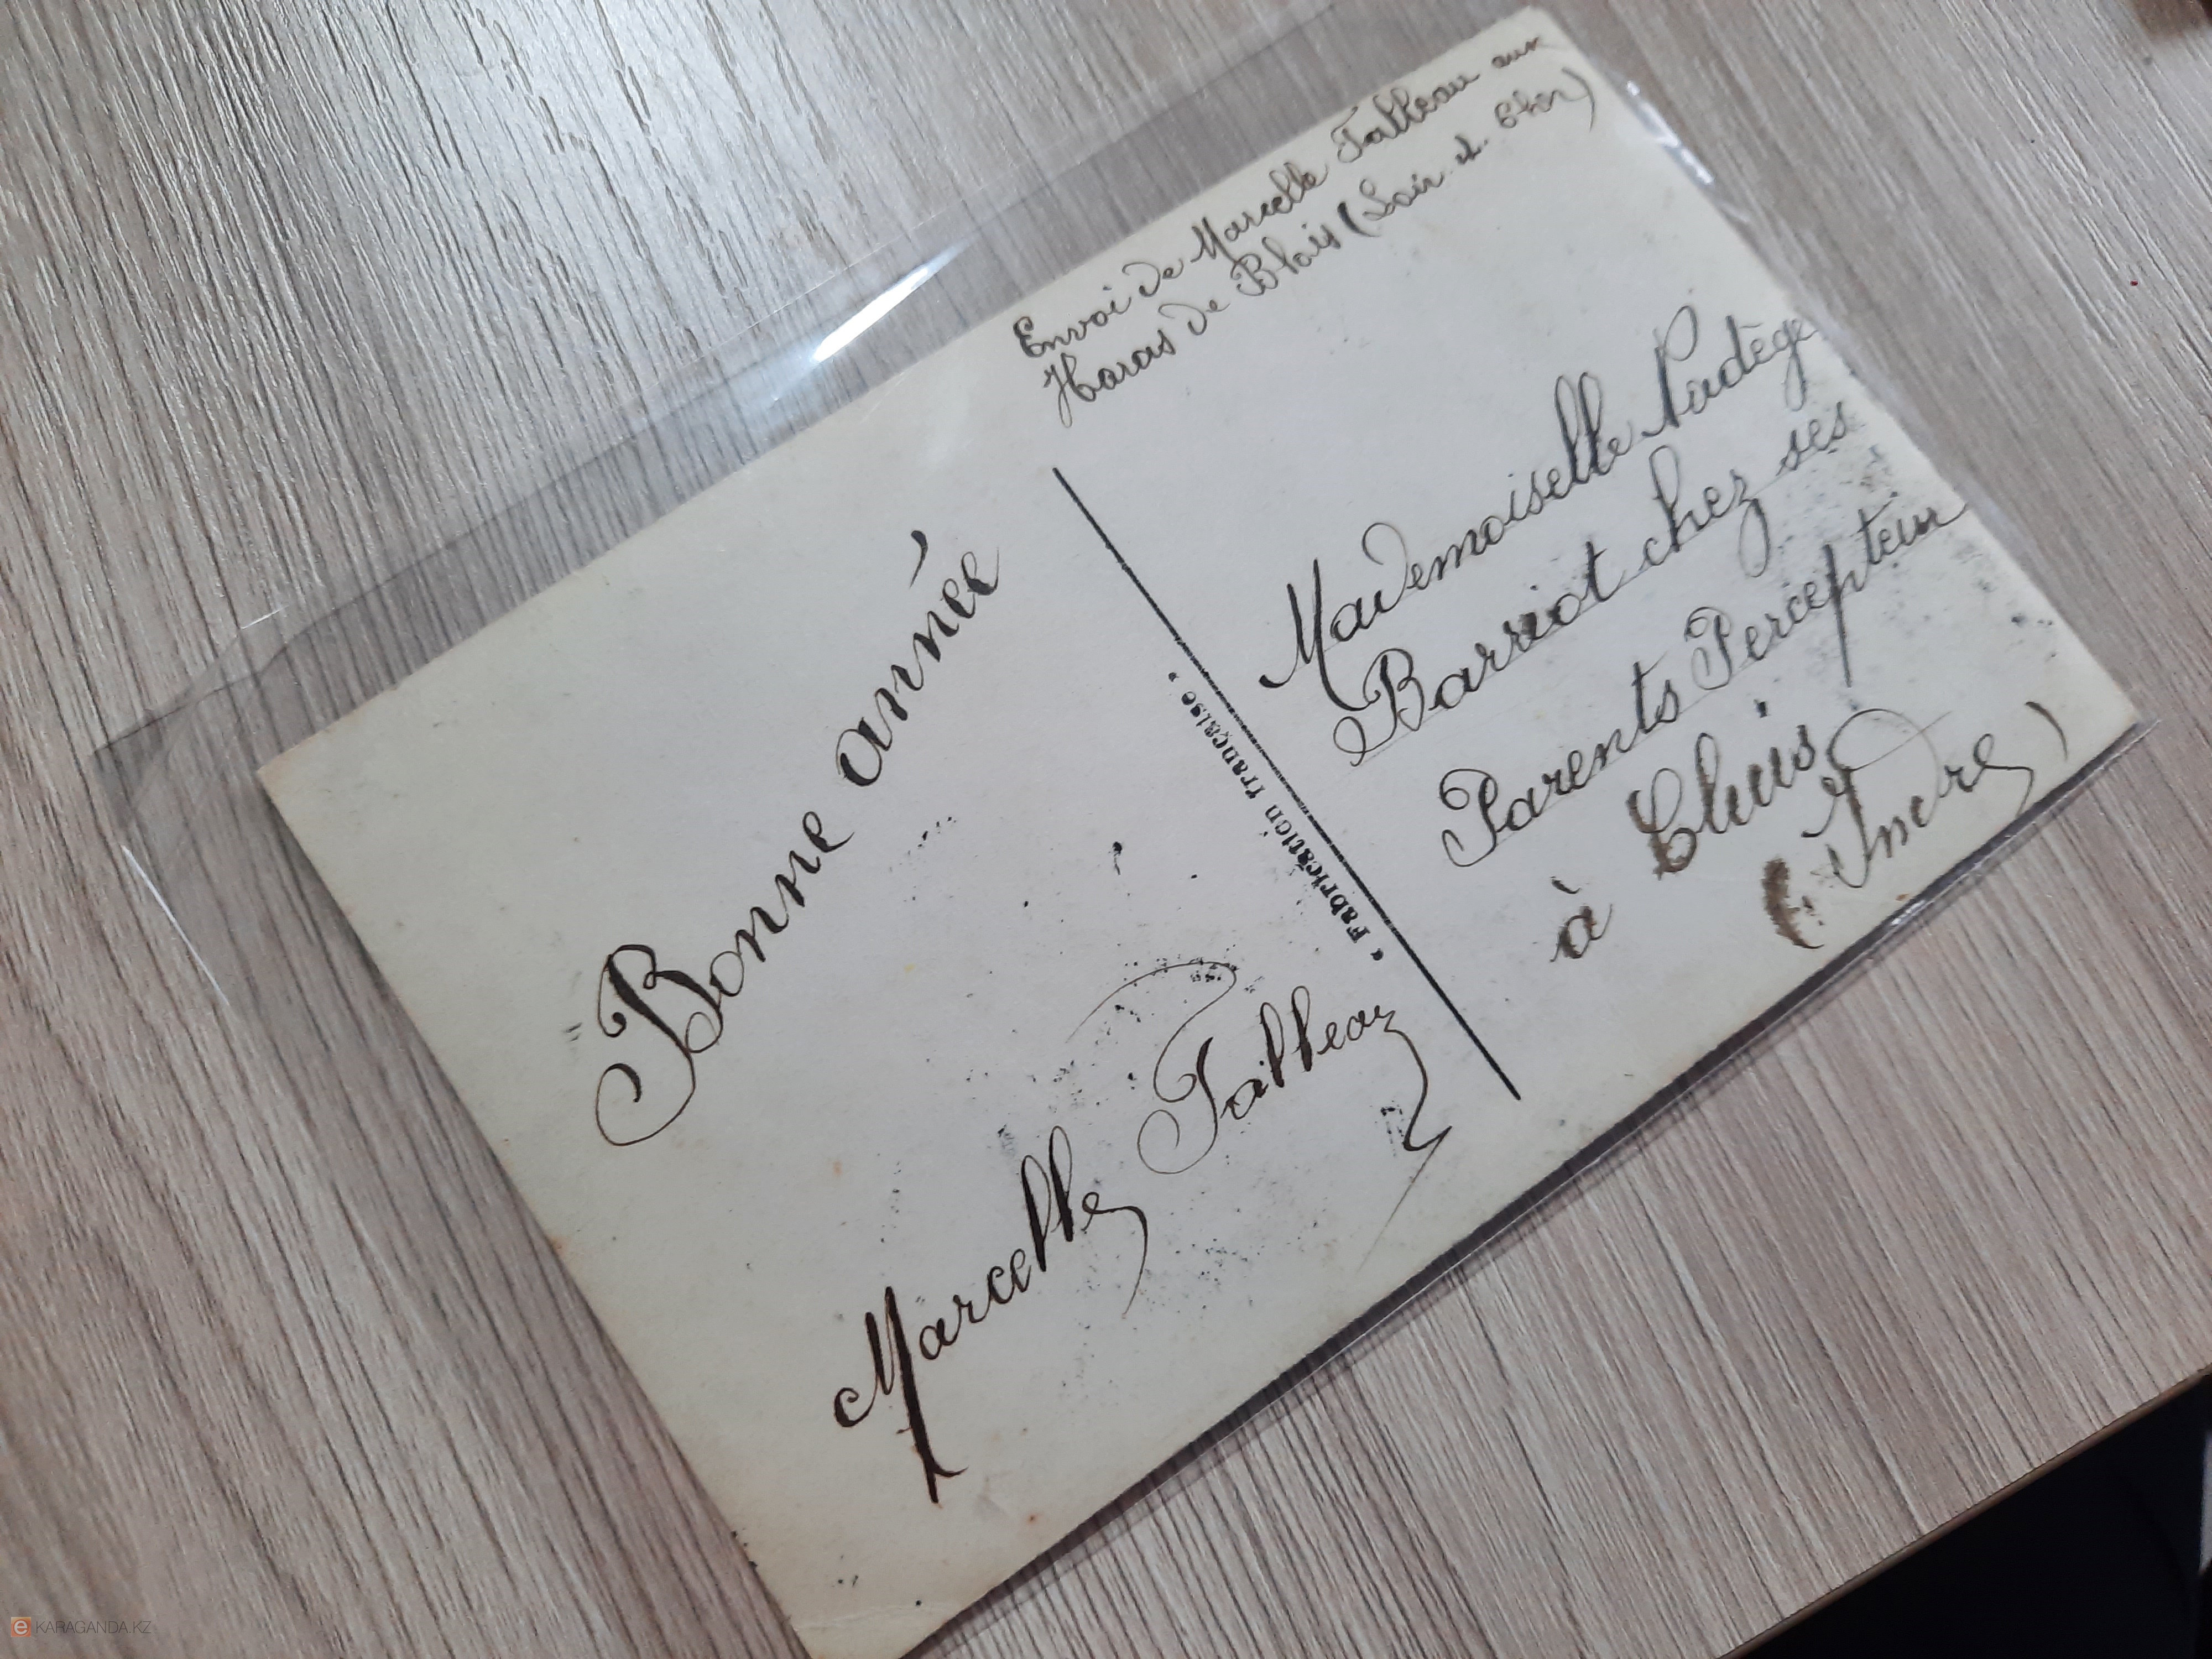 Envoi de Marcelle Talbeau aux
Haras de Blois (Loir et Cher)
Bonne année
Marcelle Talbeau
« Fabrication française »
Mademoiselle Nadège
Barriot chez ses
Parents Percepteur
à Cluis
(Indre)
e KARAGANDA.KZ